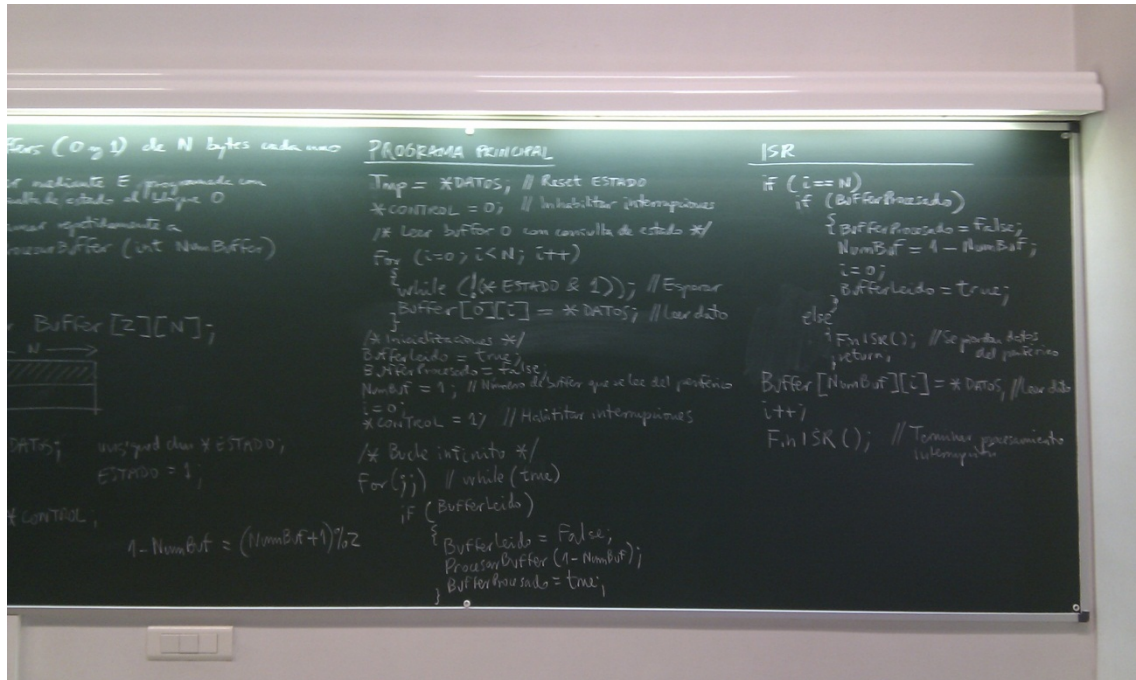 ffers (0 y 1) de N bytes cada uno
er mediante E programada con
sulta de estado al bloque 0
amar repetidamente a
rocesarBuffer (int NumBuffer)
r Buffer [2][N];
N
DATOS; unsigned char *ESTADO;
ESTADO = 1;
*CONTROL,
1-NumBuf = (NumBuf+1)%2
PROGRAMA PRINCIPAL
Tmp = *DATOS; // Reset ESTADO
*CONTROL = 0; // Inhabilitar interrupciones
/* Leer buffer 0 con consulta de estado */
For (i=0; i<N; i++)
{
while (!(*ESTADO & 1)); // Esperar
Buffer[0][i] = *DATOS; // Leer dato
}
/* Inicializaciones */
BufferLeido = true;
BufferProcesado = false;
NumBuf = 1; // Número de buffer que se lee del periférico
i=0;
*CONTROL = 1; // Habilitar interrupciones
/* Bucle infinito */
For(;;) // while (true)
if (BufferLeido)
{
BufferLeido = False;
ProcesarBuffer (1-NumBuf);
BufferProcesado = true;
}
ISR
if (i==N)
if (BufferProcesado)
{ BufferProcesado = False;
NumBuf = 1 - NumBuf;
i=0;
BufferLeido = true;
}
else
{ FinISR(); // Se pierden datos
return; del periférico
Buffer [NumBuf][i] = *DATOS; // Leer dato
i++;
FinISR(); // Terminar procesamiento
interrupción